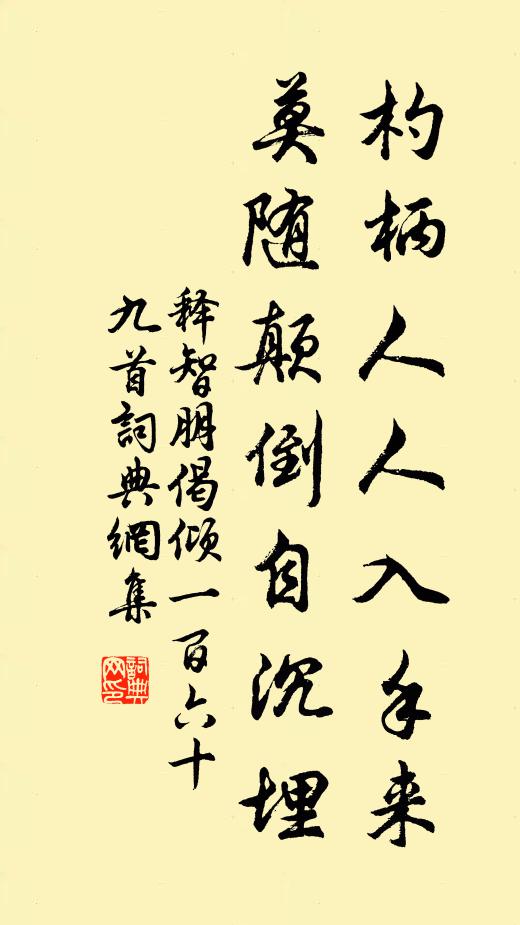 杓柄人人入手来
莫随颠倒自沉埋
释智朋偈倾一百六十
九首詞典網集
詞典
网印